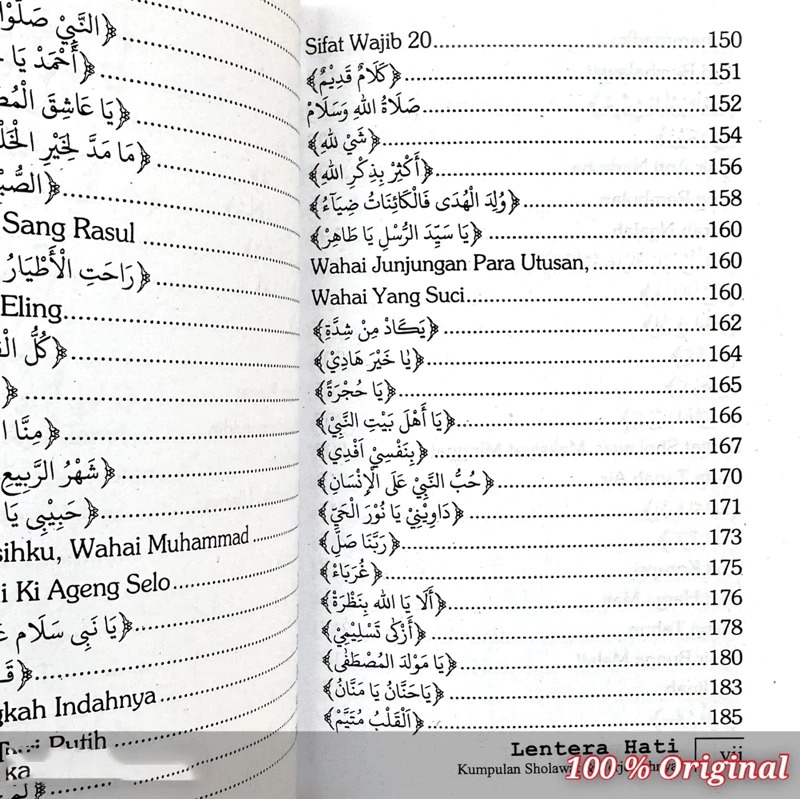 ﴿النَّبِيْ صَلُّوْا
﴿أَحْمَدْ يَا
﴿يَا عَاشِقَ
﴿مَا مَدَّ لِخَيْرِ
Sang Rasul
﴿رَاحَتِ الْأَطْيَارُ
Eling
﴿كُلُّ
﴿مِنَّا
﴿شَهْرُ الرَّبِيعِ
﴿حَبِيْبِى يَا
sihku, Wahai Muhammad
i Ki Ageng Selo
﴿يَا نَبِى سَلَام
gkah Indahnya
Putih
ka
Sifat Wajib 20 150
﴿كَلَامٌ قَدِيْمٌ﴾ 151
صَلَاةُ اللهِ وَسَلَامْ 152
﴿شَيْ لِلهِ﴾ 154
﴿أَكْثِرْ بِذِكْرِ اللهِ﴾ 156
﴿وُلِدَ الْهُدَى فَالْكَائِنَاتُ ضِيَآءُ﴾ 158
﴿يَا سَيِّدَ الرُّسْلِ يَا طَاهِرْ﴾ 160
Wahai Junjungan Para Utusan, 160
Wahai Yang Suci 160
﴿يَكَادُ مِنْ شِدَّةِ﴾ 162
﴿يَا خَيْرَ هَادِيْ﴾ 164
﴿يَا حُجْرَةً﴾ 165
﴿يَا أَهْلَ بَيْتِ النَّبِيْ﴾ 166
﴿بِنَفْسِيْ اَفْدِيْ﴾ 167
﴿حُبُّ النَّبِيْ عَلَى الْإِنْسَانِ﴾ 170
﴿دَاوِيْنِيْ يَا نُوْرَ الْحَيِّ﴾ 171
﴿رَبَّنَا صَلِّ﴾ 173
﴿غُرَبَاءْ﴾ 175
﴿أَلَا يَا الله بِنَظْرَةْ﴾ 176
﴿أَزْكَى تَسْلِيْمِيْ﴾ 178
﴿يَا مَوْلِدَ الْمُصْطَفَى﴾ 180
﴿يَاحَنَّانُ يَا مَنَّانُ﴾ 183
﴿اَلْقَلْبُ مُتَيَّمْ﴾ 185
Lentera Hati vii
Kumpulan
100 % Original